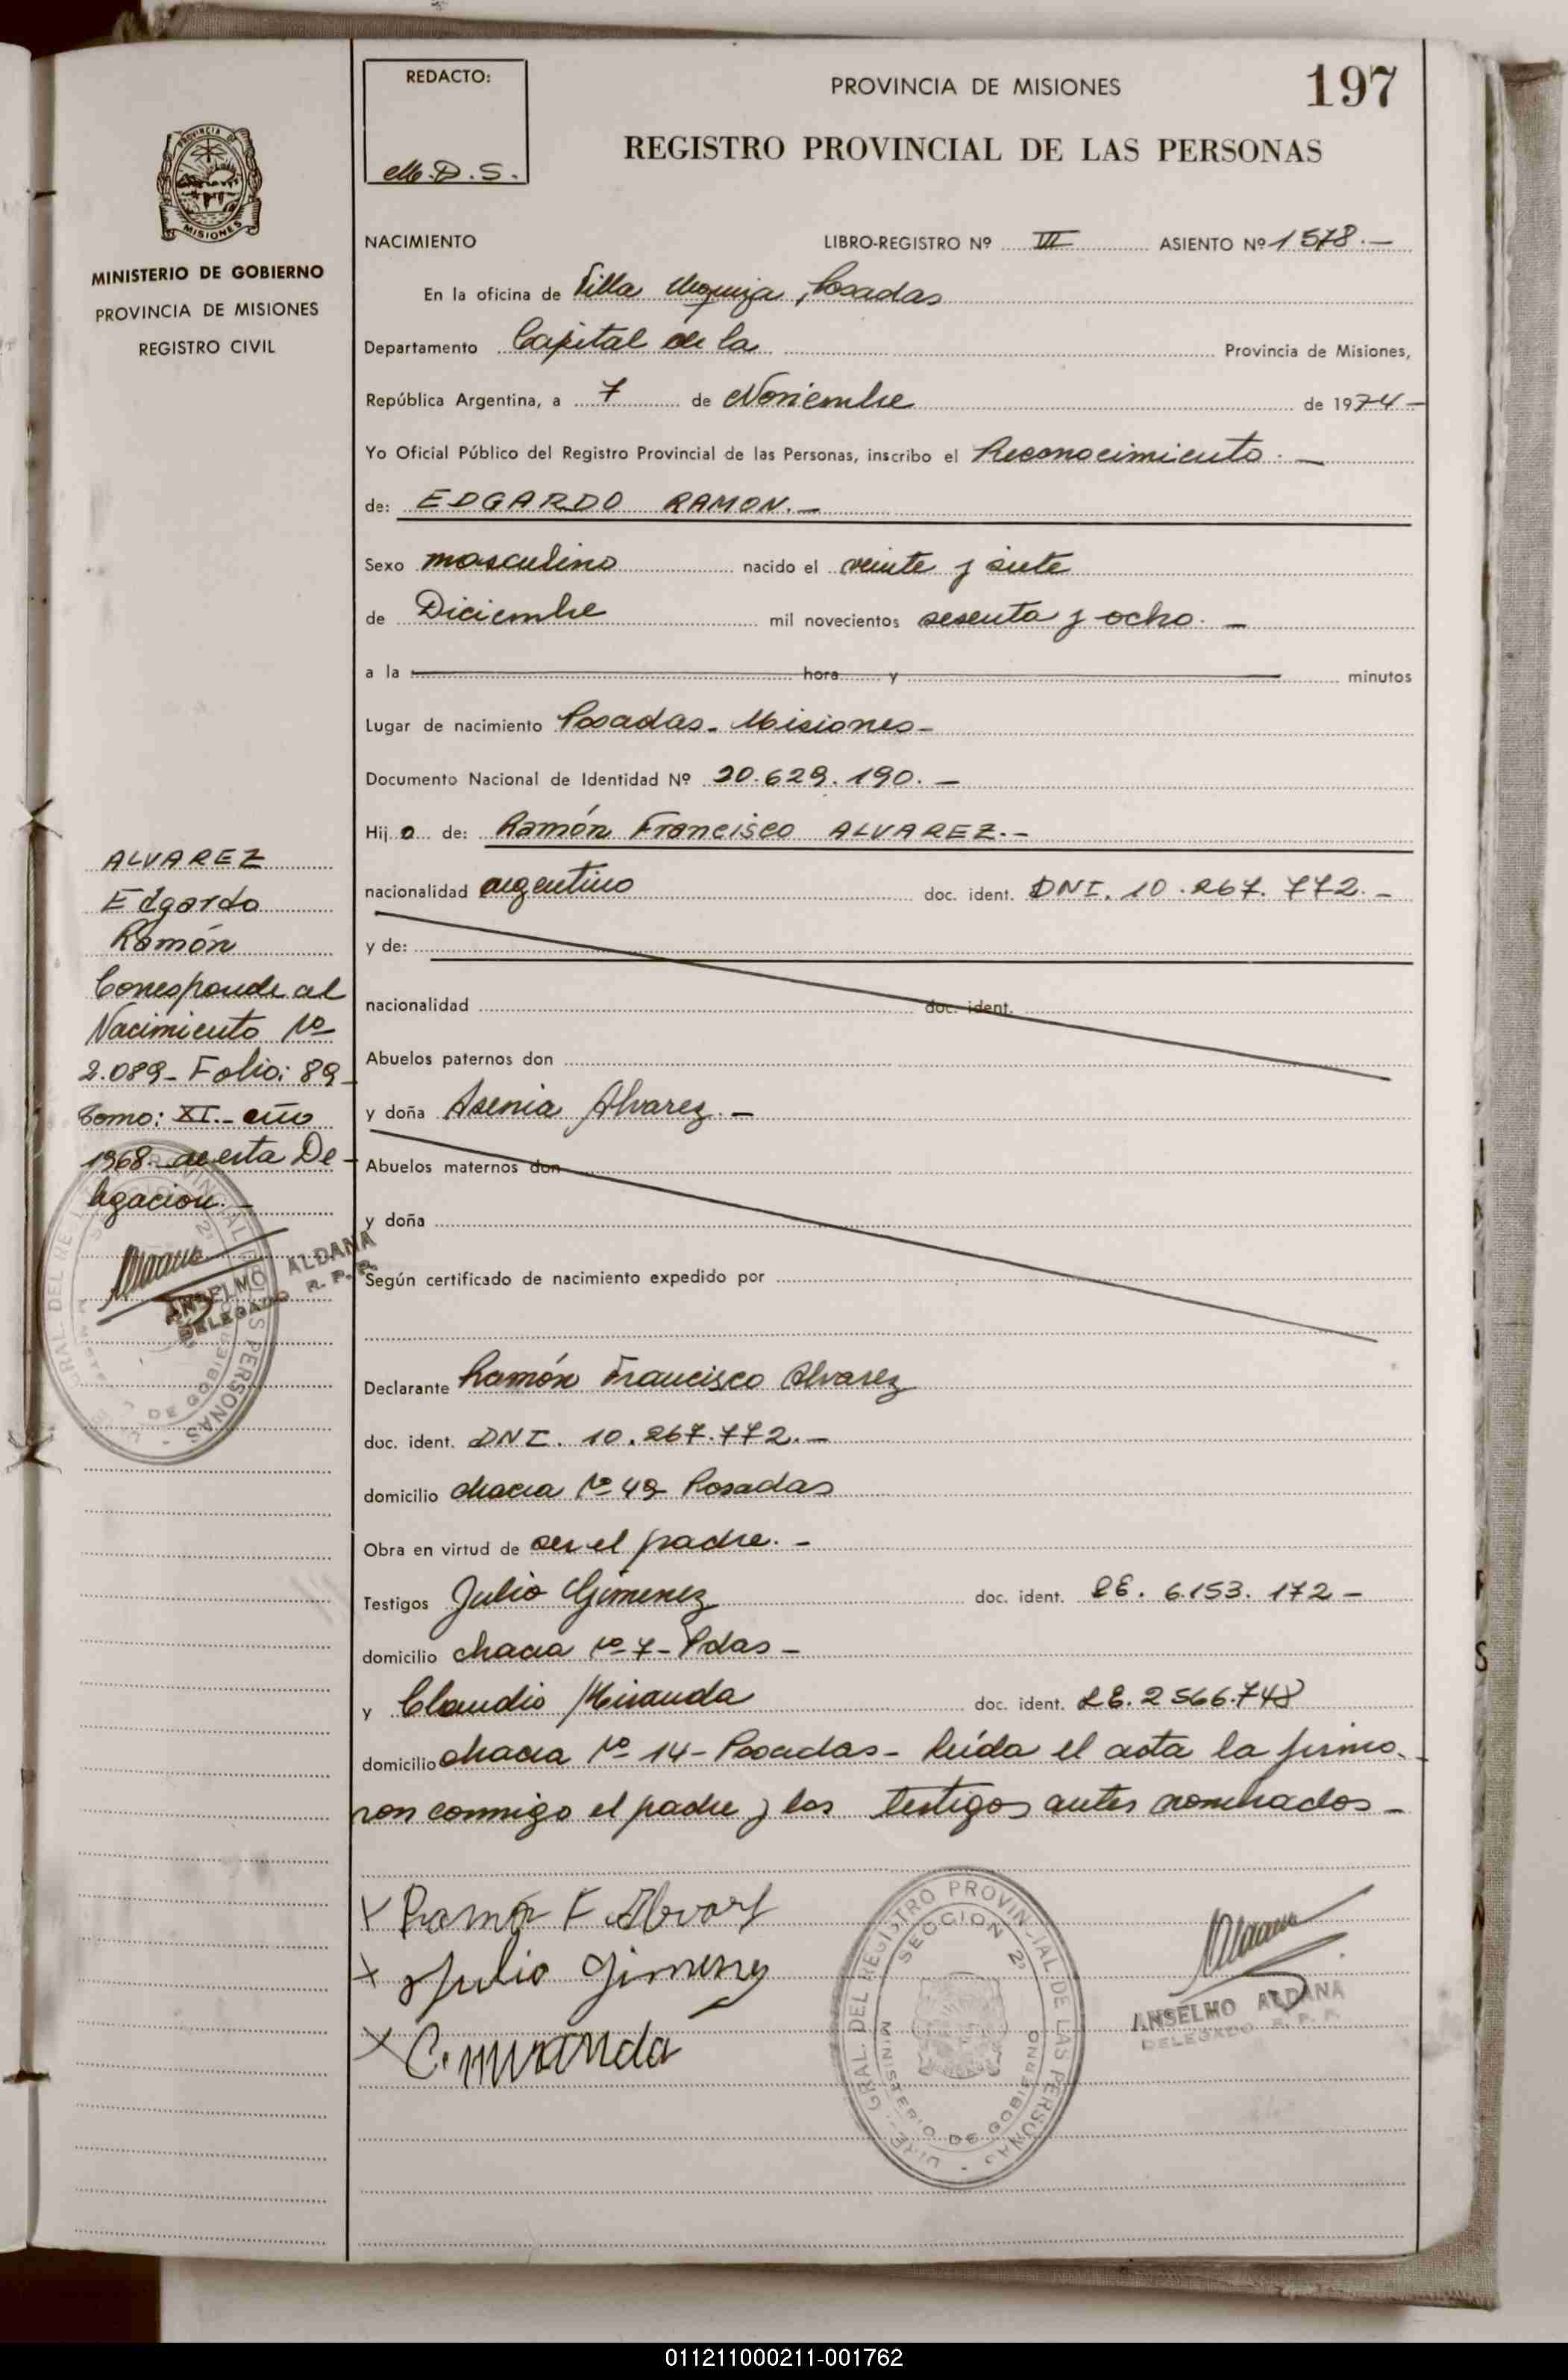 REDACTO:
M.D.S.
PROVINCIA DE MISIONES
197
REGISTRO PROVINCIAL DE LAS PERSONAS
PROVINCIA DE
MISIONES
MINISTERIO DE GOBIERNO
PROVINCIA DE MISIONES
REGISTRO CIVIL
NACIMIENTO LIBRO-REGISTRO Nº III ASIENTO Nº 1578.—
En la oficina de Villa Urquiza, Posadas
Departamento Capital de la Provincia de Misiones,
República Argentina, a 7 de Noviembre de 1974-
Yo Oficial Público del Registro Provincial de las Personas, inscribo el Reconocimiento.—
de: EDGARDO RAMON.—
Sexo masculino nacido el veinte y siete
de Diciembre mil novecientos sesenta y ocho.—
a la hora y minutos
Lugar de nacimiento Posadas- Misiones-
Documento Nacional de Identidad Nº 20.629.190.—
Hijo de: Ramón Francisco ALVAREZ.-
nacionalidad argentino doc. ident. DNI. 10.267.772.-
y de:
nacionalidad doc. ident.
Abuelos paternos don
y doña Asenia Alvarez.—
Abuelos maternos don
y doña
Según certificado de nacimiento expedido por
Declarante Ramón Francisco Alvarez
doc. ident. DNI. 10.267.772.—
domicilio chacra Nº 49 Posadas
Obra en virtud de ser el padre.-
Testigos Julio Gimenez doc. ident. LE. 6.153.172-
domicilio chacra Nº 7- Pdas-
y Claudio Miranda doc. ident. LE. 2566.748
domicilio chacra Nº 14- Posadas- leída el acta la firma-
ron conmigo el padre y los testigos antes nombrados-
ALVAREZ
Edgardo
Ramón
Corresponde al
Nacimiento Nº
2.089- Folio: 89-
Tomo: XI.- año
1968- de esta De-
legacion.-
ANSELMO ALDANA
DELEGADO R. P. P.
X Ramón F Alvarez
X Julio Gimenez
X C. miranda
DIRE. GRAL. DEL REGISTRO PROVINCIAL DE LAS PERSONAS -
SECCION 2ª
MINISTERIO DE GOBIERNO
ANSELMO ALDANA
DELEGADO R. P. P.
011211000211-001762